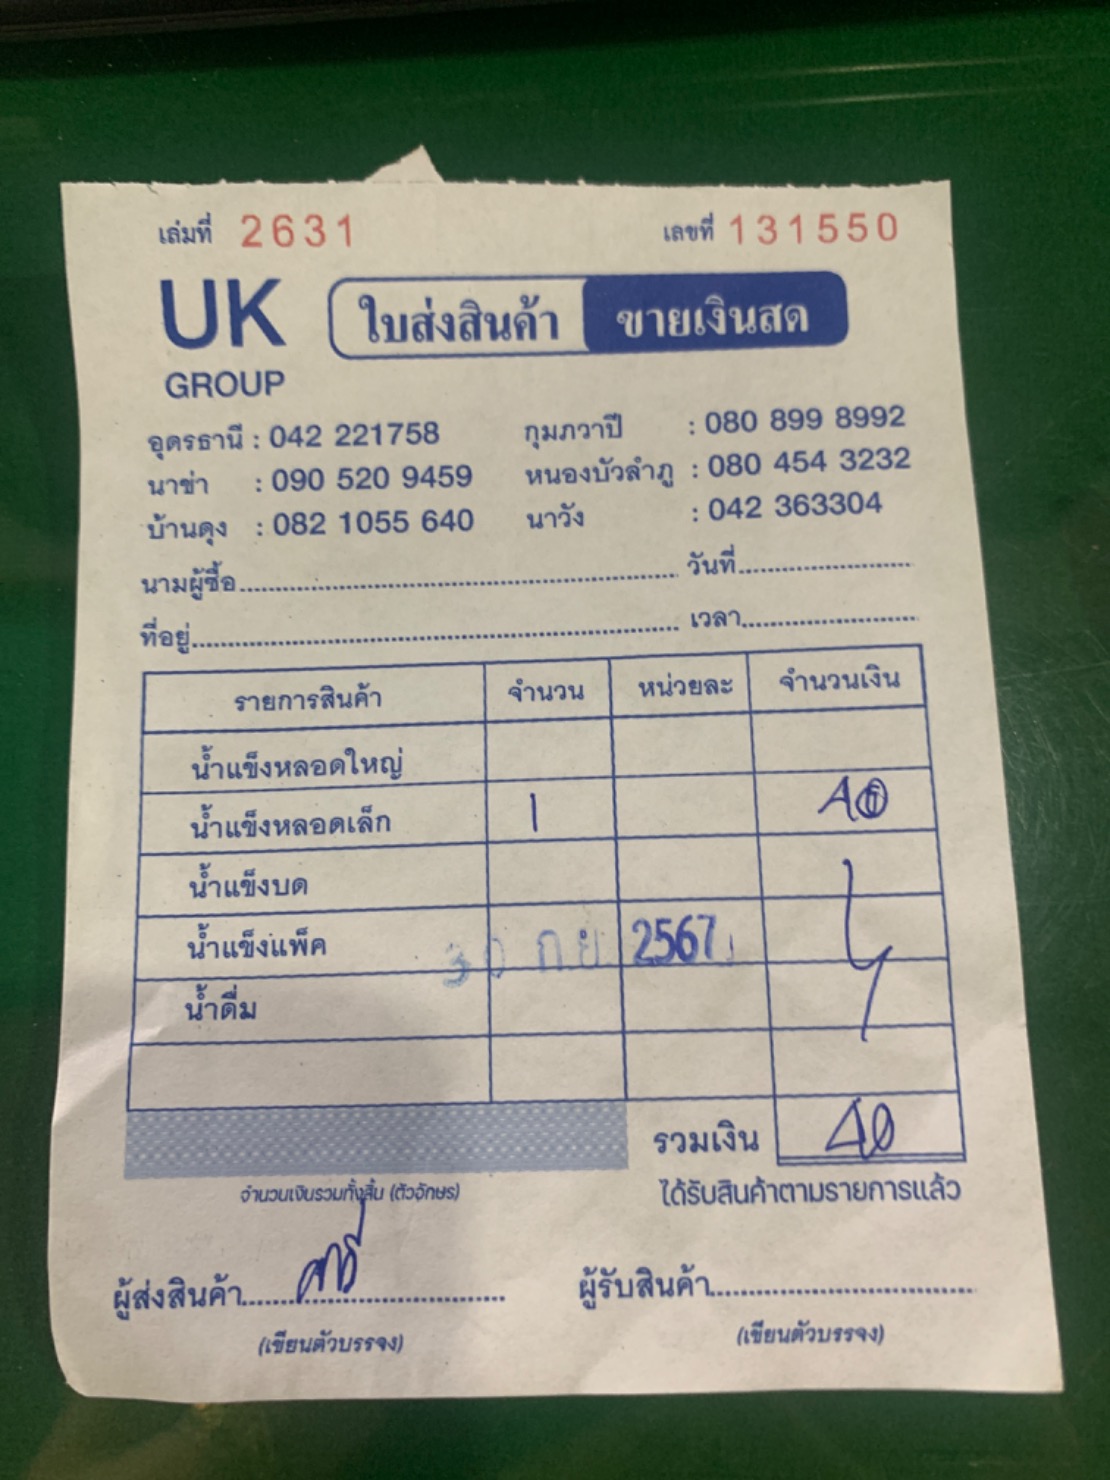 เล่มที่ 2631 เลขที่ 131550
UK GROUP ใบส่งสินค้า ขายเงินสด
อุดรธานี : 042 221758 กุมภวาปี : 080 899 8992
นาข่า : 090 520 9459 หนองบัวลำภู : 080 454 3232
บ้านดุง : 082 1055 640 นาวัง : 042 363304
นามผู้ซื้อ วันที่
ที่อยู่ เวลา
รายการสินค้า จำนวน หน่วยละ จำนวนเงิน
น้ำแข็งหลอดใหญ่
น้ำแข็งหลอดเล็ก 1 40
น้ำแข็งบด
น้ำแข็งแพ็ค 30 ก.ย. 2567
น้ำดื่ม
รวมเงิน 40
จำนวนเงินรวมทั้งสิ้น (ตัวอักษร) ได้รับสินค้าตามรายการแล้ว
ผู้ส่งสินค้า ผู้รับสินค้า
(เขียนตัวบรรจง) (เขียนตัวบรรจง)